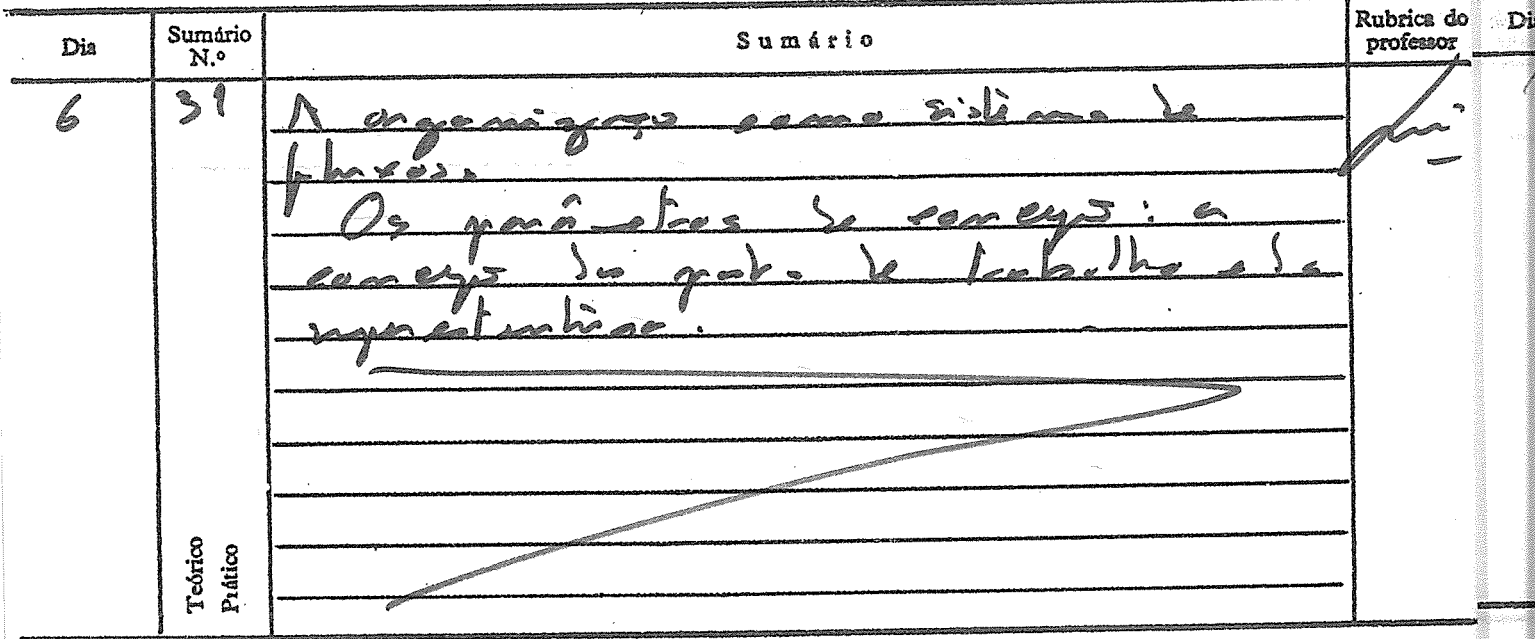 Dia
Sumário
N.º
Sumário
Rubrica do
professor
6
31
A organização como sistema de
fluxos.
Os parâmetros de concepção: a
concepção do posto de trabalho e da
superestrutura.
Teórico
Prático